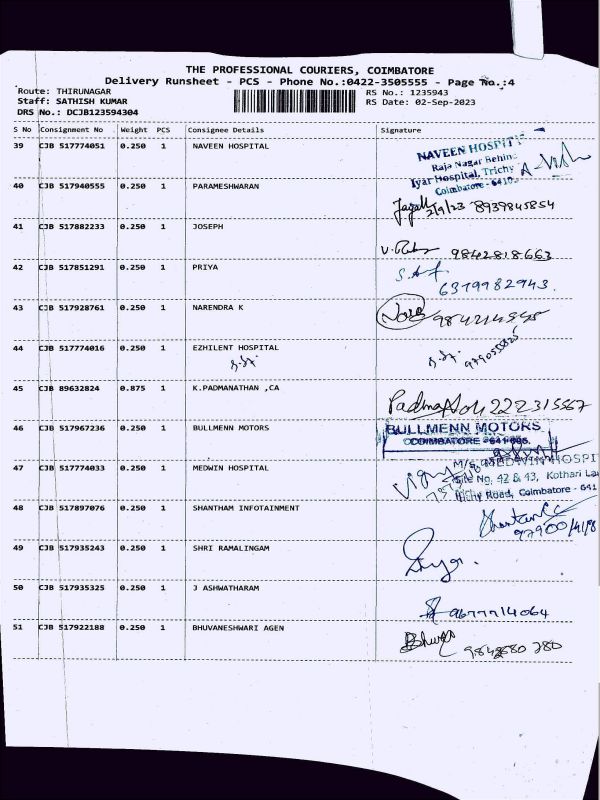 THE PROFESSIONAL COURIERS, COIMBATORE
Delivery Runsheet - PCS - Phone No.:0422-3505555 - Page No.:4
Route: THIRUNAGAR RS No.: 1235943
Staff: SATHISH KUMAR RS Date: 02-Sep-2023
DRS No.: DCJB123594304
S No Consignment No Weight PCS Consignee Details Signature
39 CJB 517774051 0.250 1 NAVEEN HOSPITAL
NAVEEN HOSPITAL
Raja Nagar Behind
Iyar Hospital, Trichy
Coimbatore - 6410
40 CJB 517940555 0.250 1 PARAMESHWARAN
2/9/23 8939845854
41 CJB 517882233 0.250 1 JOSEPH
9842818663
42 CJB 517851291 0.250 1 PRIYA
6379982943.
43 CJB 517928761 0.250 1 NARENDRA K
44 CJB 517774016 0.250 1 EZHILENT HOSPITAL
45 CJB 89632824 0.875 1 K.PADMANATHAN ,CA
46 CJB 517967236 0.250 1 BULLMENN MOTORS
BULLMENN MOTORS
COIMBATORE - 641 005.
47 CJB 517774033 0.250 1 MEDWIN HOSPITAL
M/s. MEDWIN HOSPI
Site No. 42 & 43, Kothari La
Trichy Road, Coimbatore - 641
48 CJB 517897076 0.250 1 SHANTHAM INFOTAINMENT
49 CJB 517935243 0.250 1 SHRI RAMALINGAM
50 CJB 517935325 0.250 1 J ASHWATHARAM
9677714064
51 CJB 517922188 0.250 1 BHUVANESHWARI AGEN